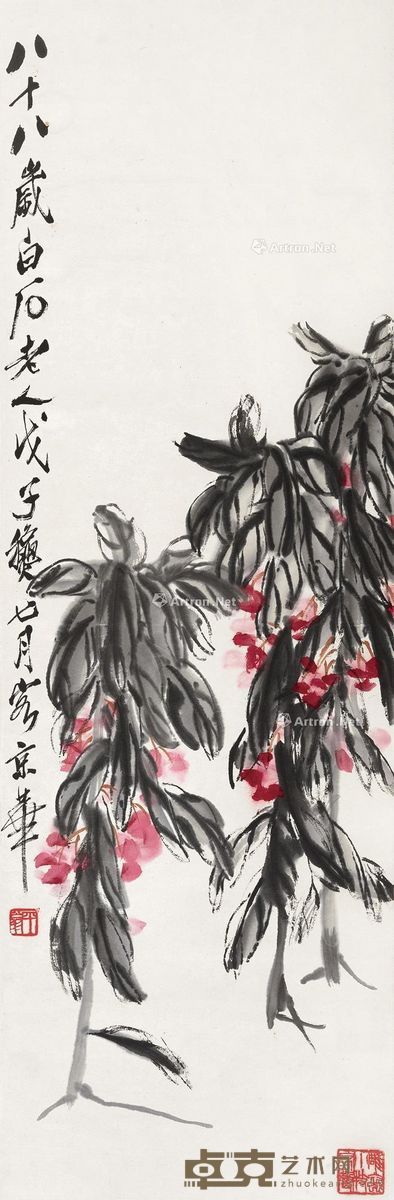 八十八歲白石老人戊子穐七月客京華
Artron.Net
Artron.Net
Artron.Net
卓克艺术网
zhuokearts.com